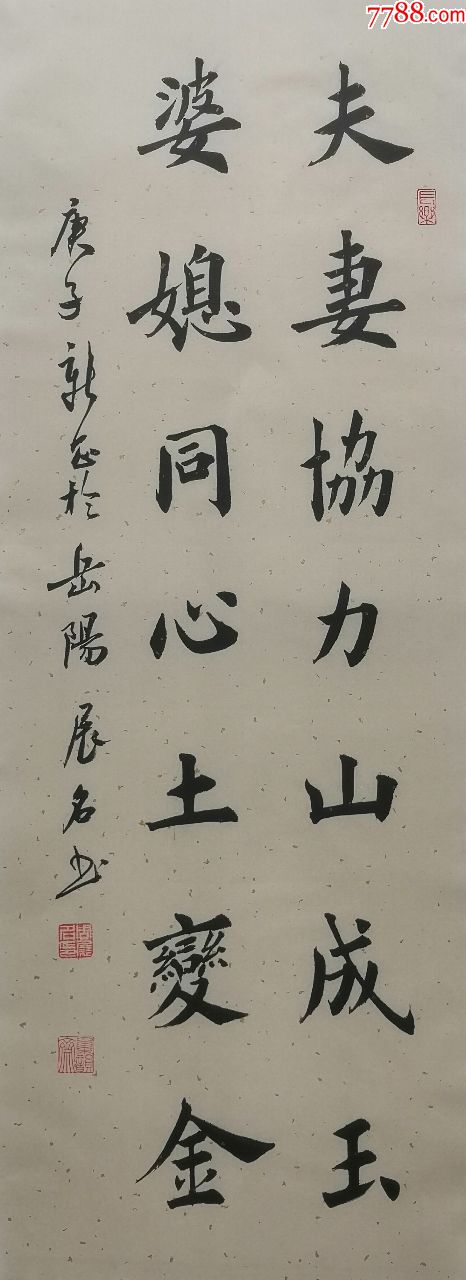 7788.com
夫妻協力山成玉
婆媳同心土變金
庚子新春於岳陽展名書